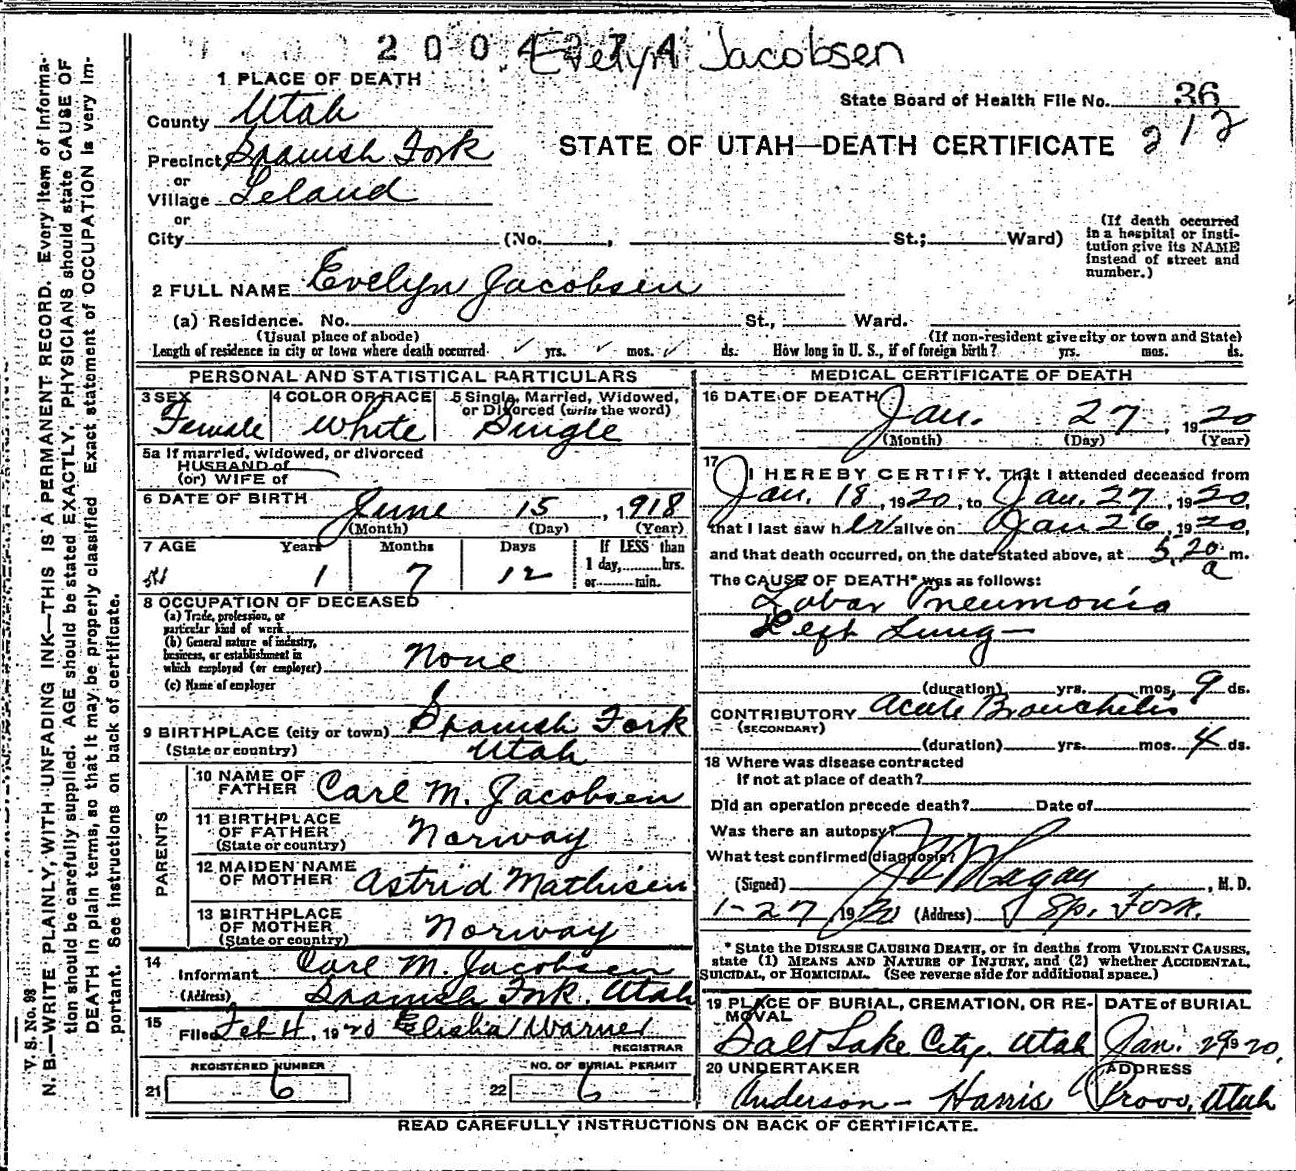 2004274 Evelyn Jacobsen
1 PLACE OF DEATH
State Board of Health File No. 36
County Utah
STATE OF UTAH—DEATH CERTIFICATE 212
Precinct Spanish Fork
or
Village Leland
or
City (No. , St.; Ward)
(If death occurred in a hospital or institution give its NAME instead of street and number.)
2 FULL NAME Evelyn Jacobsen
(a) Residence. No. St., Ward.
(Usual place of abode) (If non-resident give city or town and State)
Length of residence in city or town where death occurred yrs. mos. ds. How long in U. S., if of foreign birth? yrs. mos. ds.
PERSONAL AND STATISTICAL PARTICULARS
3 SEX Female
4 COLOR OR RACE White
5 Single, Married, Widowed, or Divorced (write the word) Single
5a If married, widowed, or divorced
HUSBAND of
(or) WIFE of
6 DATE OF BIRTH June 15, 1918
(Month) (Day) (Year)
7 AGE Years Months Days If LESS than
1 7 12 1 day, hrs.
or min.
8 OCCUPATION OF DECEASED
(a) Trade, profession, or
particular kind of work
(b) General nature of industry,
business, or establishment in
which employed (or employer) None
(c) Name of employer
9 BIRTHPLACE (city or town) Spanish Fork
(State or country) Utah
PARENTS
10 NAME OF FATHER Carl M. Jacobsen
11 BIRTHPLACE OF FATHER (State or country) Norway
12 MAIDEN NAME OF MOTHER Astrid Mathisen
13 BIRTHPLACE OF MOTHER (State or country) Norway
14 Informant Carl M. Jacobsen
(Address) Spanish Fork. Utah
15 Filed Feb 4, 1920 Elisha Warner
REGISTRAR
REGISTERED NUMBER
21 6
NO. OF BURIAL PERMIT
22 6
MEDICAL CERTIFICATE OF DEATH
16 DATE OF DEATH Jan. 27, 1920
(Month) (Day) (Year)
17 I HEREBY CERTIFY, That I attended deceased from
Jan. 18, 1920, to Jan. 27, 1920,
that I last saw her alive on Jan 26, 1920,
and that death occurred, on the date stated above, at 5.20 a m.
The CAUSE OF DEATH* was as follows:
Lobar Pneumonia
Left Lung—
(duration) yrs. mos. 9 ds.
CONTRIBUTORY Acute Bronchitis
(SECONDARY)
(duration) yrs. mos. 4 ds.
18 Where was disease contracted
If not at place of death?
Did an operation precede death? Date of
Was there an autopsy?
What test confirmed diagnosis?
(Signed) , M. D.
1-27, 1920 (Address) Sp. Fork.
* State the DISEASE CAUSING DEATH, or in deaths from VIOLENT CAUSES,
state (1) MEANS AND NATURE OF INJURY, and (2) whether ACCIDENTAL,
SUICIDAL, or HOMICIDAL. (See reverse side for additional space.)
19 PLACE OF BURIAL, CREMATION, OR REMOVAL DATE OF BURIAL
Salt Lake City, Utah Jan. 29 1920.
20 UNDERTAKER ADDRESS
Anderson - Harris Provo, Utah
READ CAREFULLY INSTRUCTIONS ON BACK OF CERTIFICATE.
V. S. No. 98
N. B.—WRITE PLAINLY, WITH UNFADING INK—THIS IS A PERMANENT RECORD. Every item of informa-
tion should be carefully supplied. AGE should be stated EXACTLY. PHYSICIANS should state CAUSE OF
DEATH in plain terms, so that it may be properly classified. Exact statement of OCCUPATION is very im-
portant. See instructions on back of certificate.